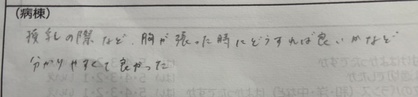 (病棟)
授乳の際など、胸が張った時にどうすれば良いかなど
分かりやすくて良かった